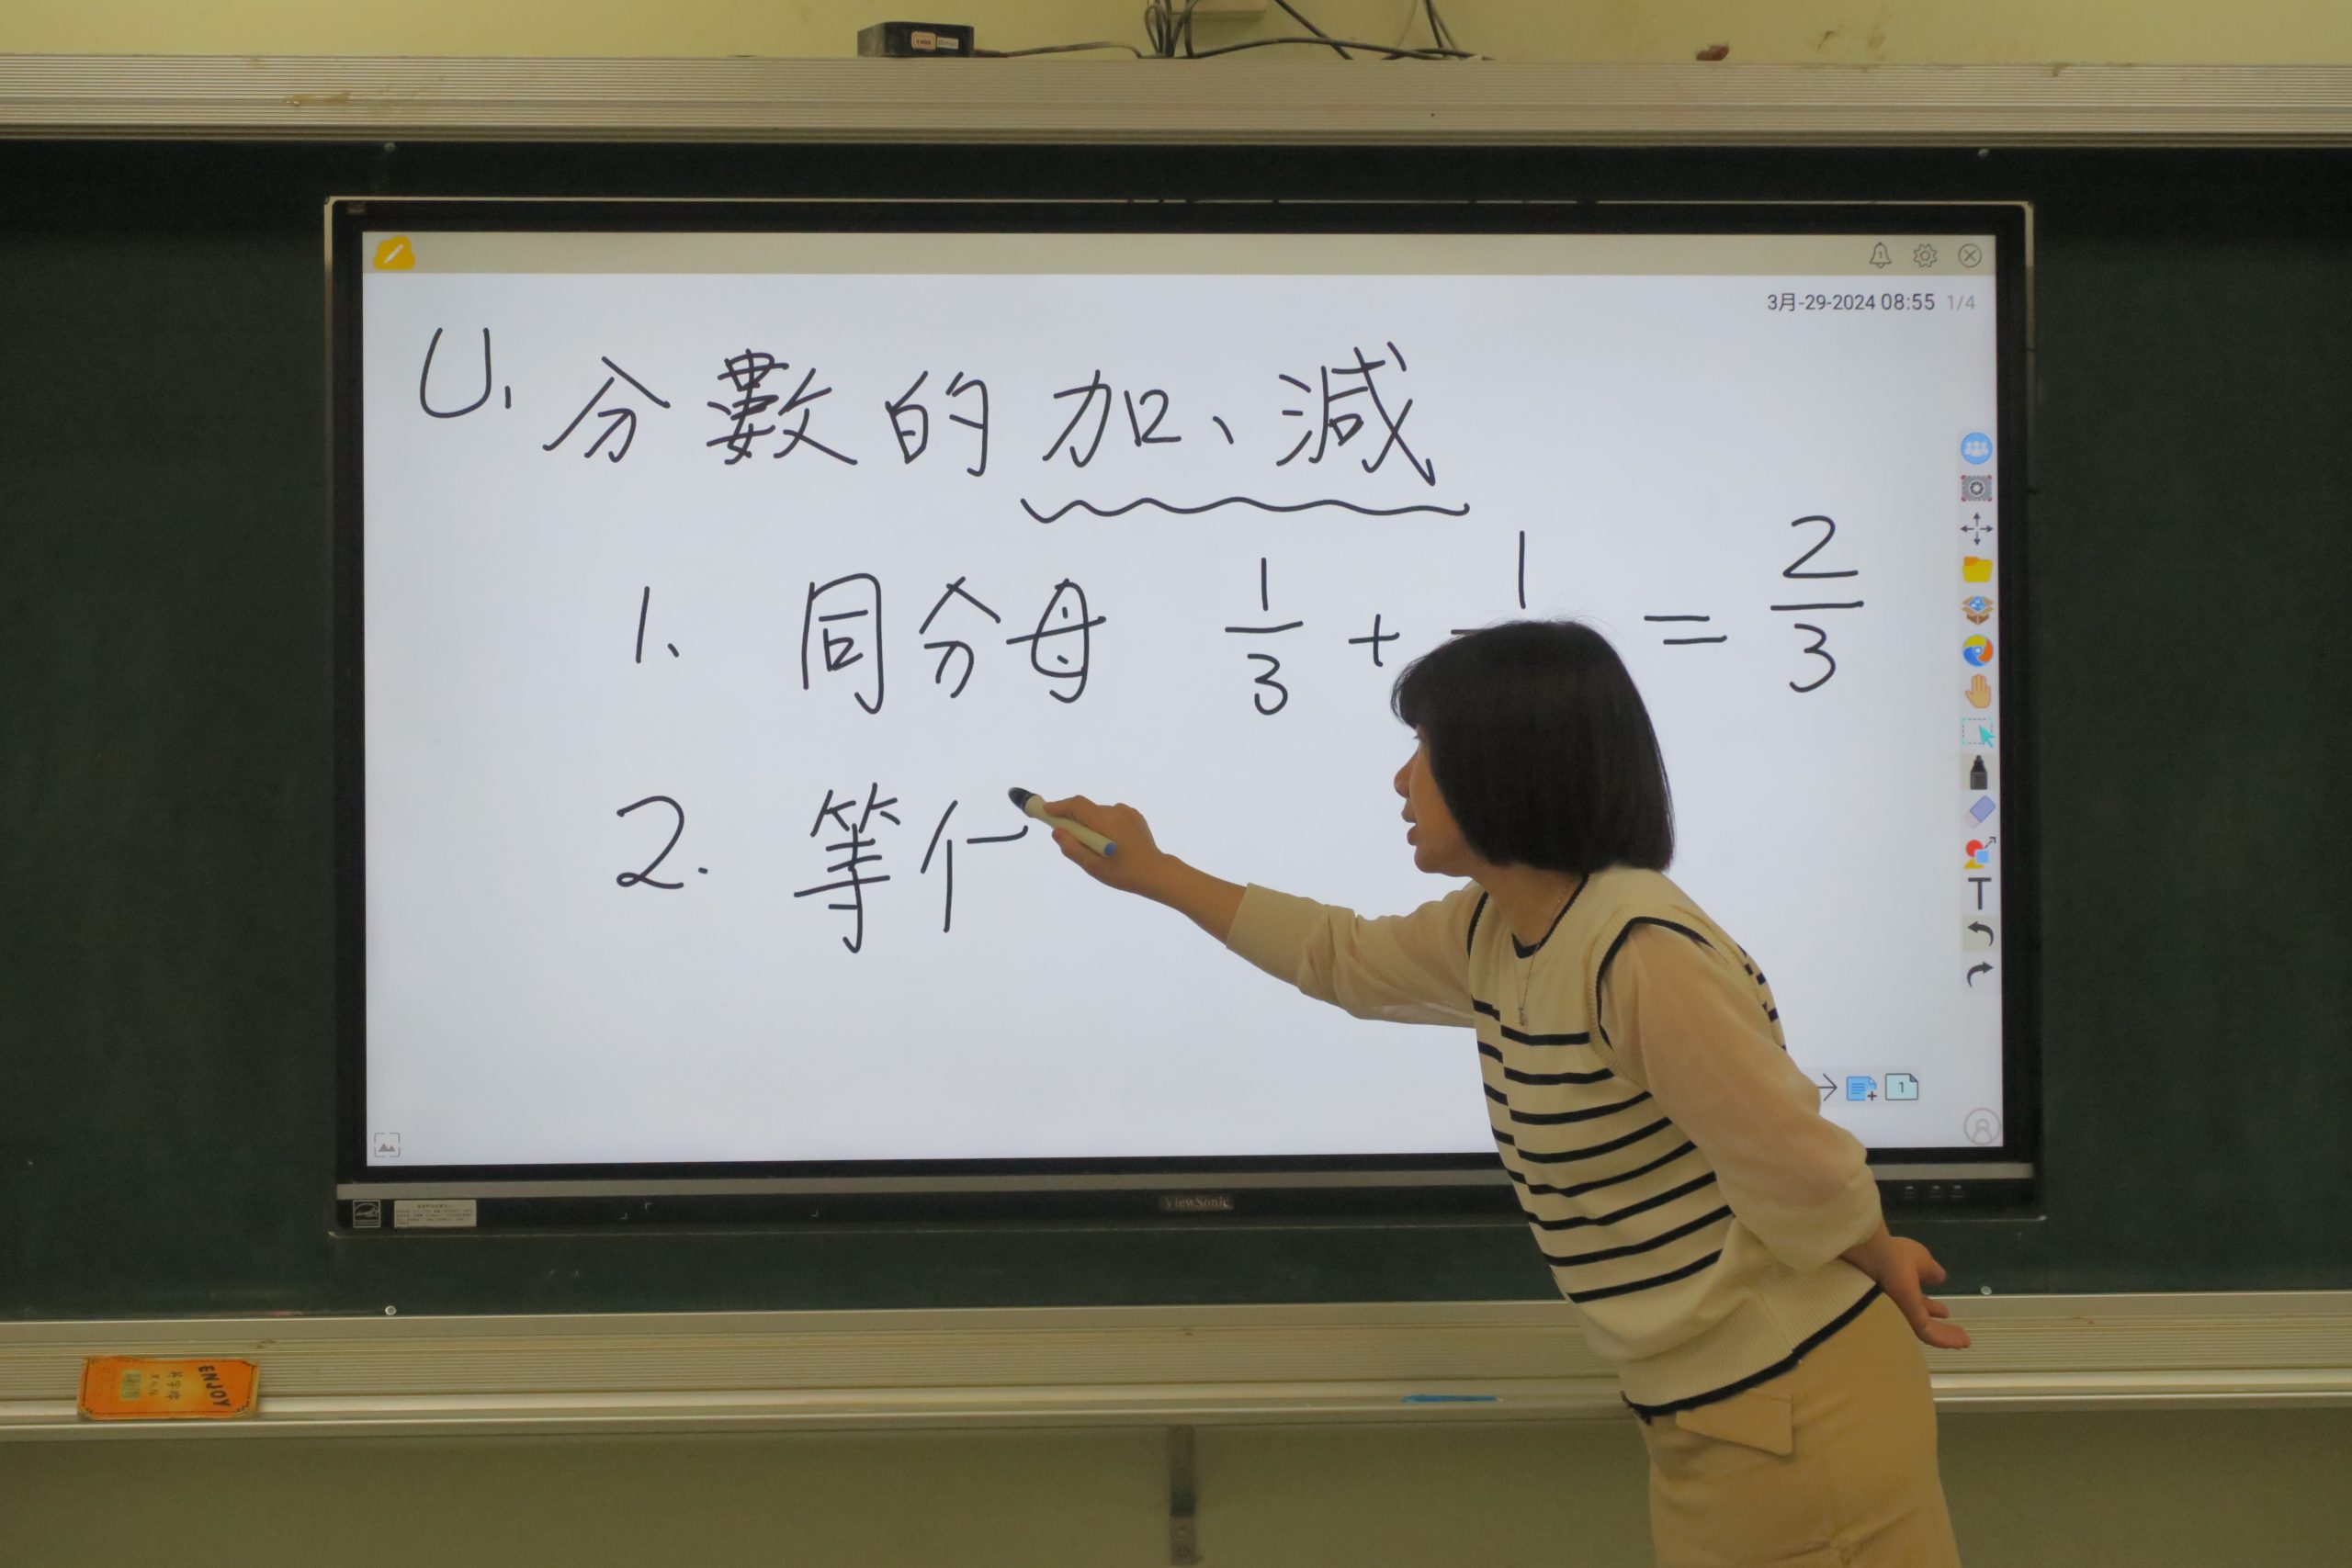 3月-29-2024 08:55 1/4
U. 分數的加、減
1. 同分母 1/3 + 1 = 2/3
2. 等
T
1
ViewSonic
ENJOY